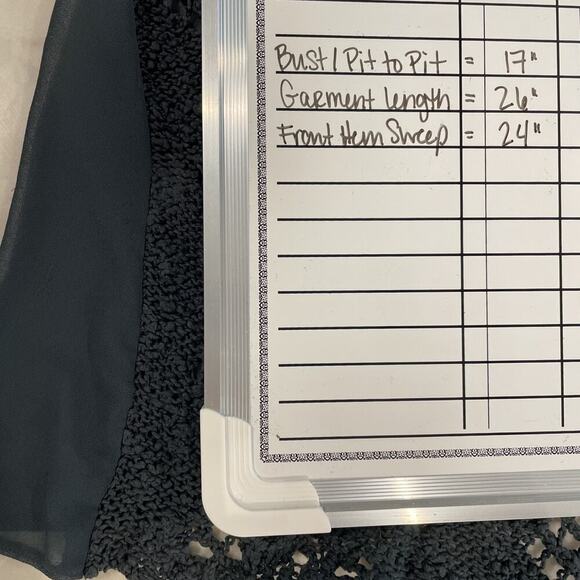 Bust / Pit to Pit = 17"
Garment Length = 26"
Front Hem Sweep = 24"